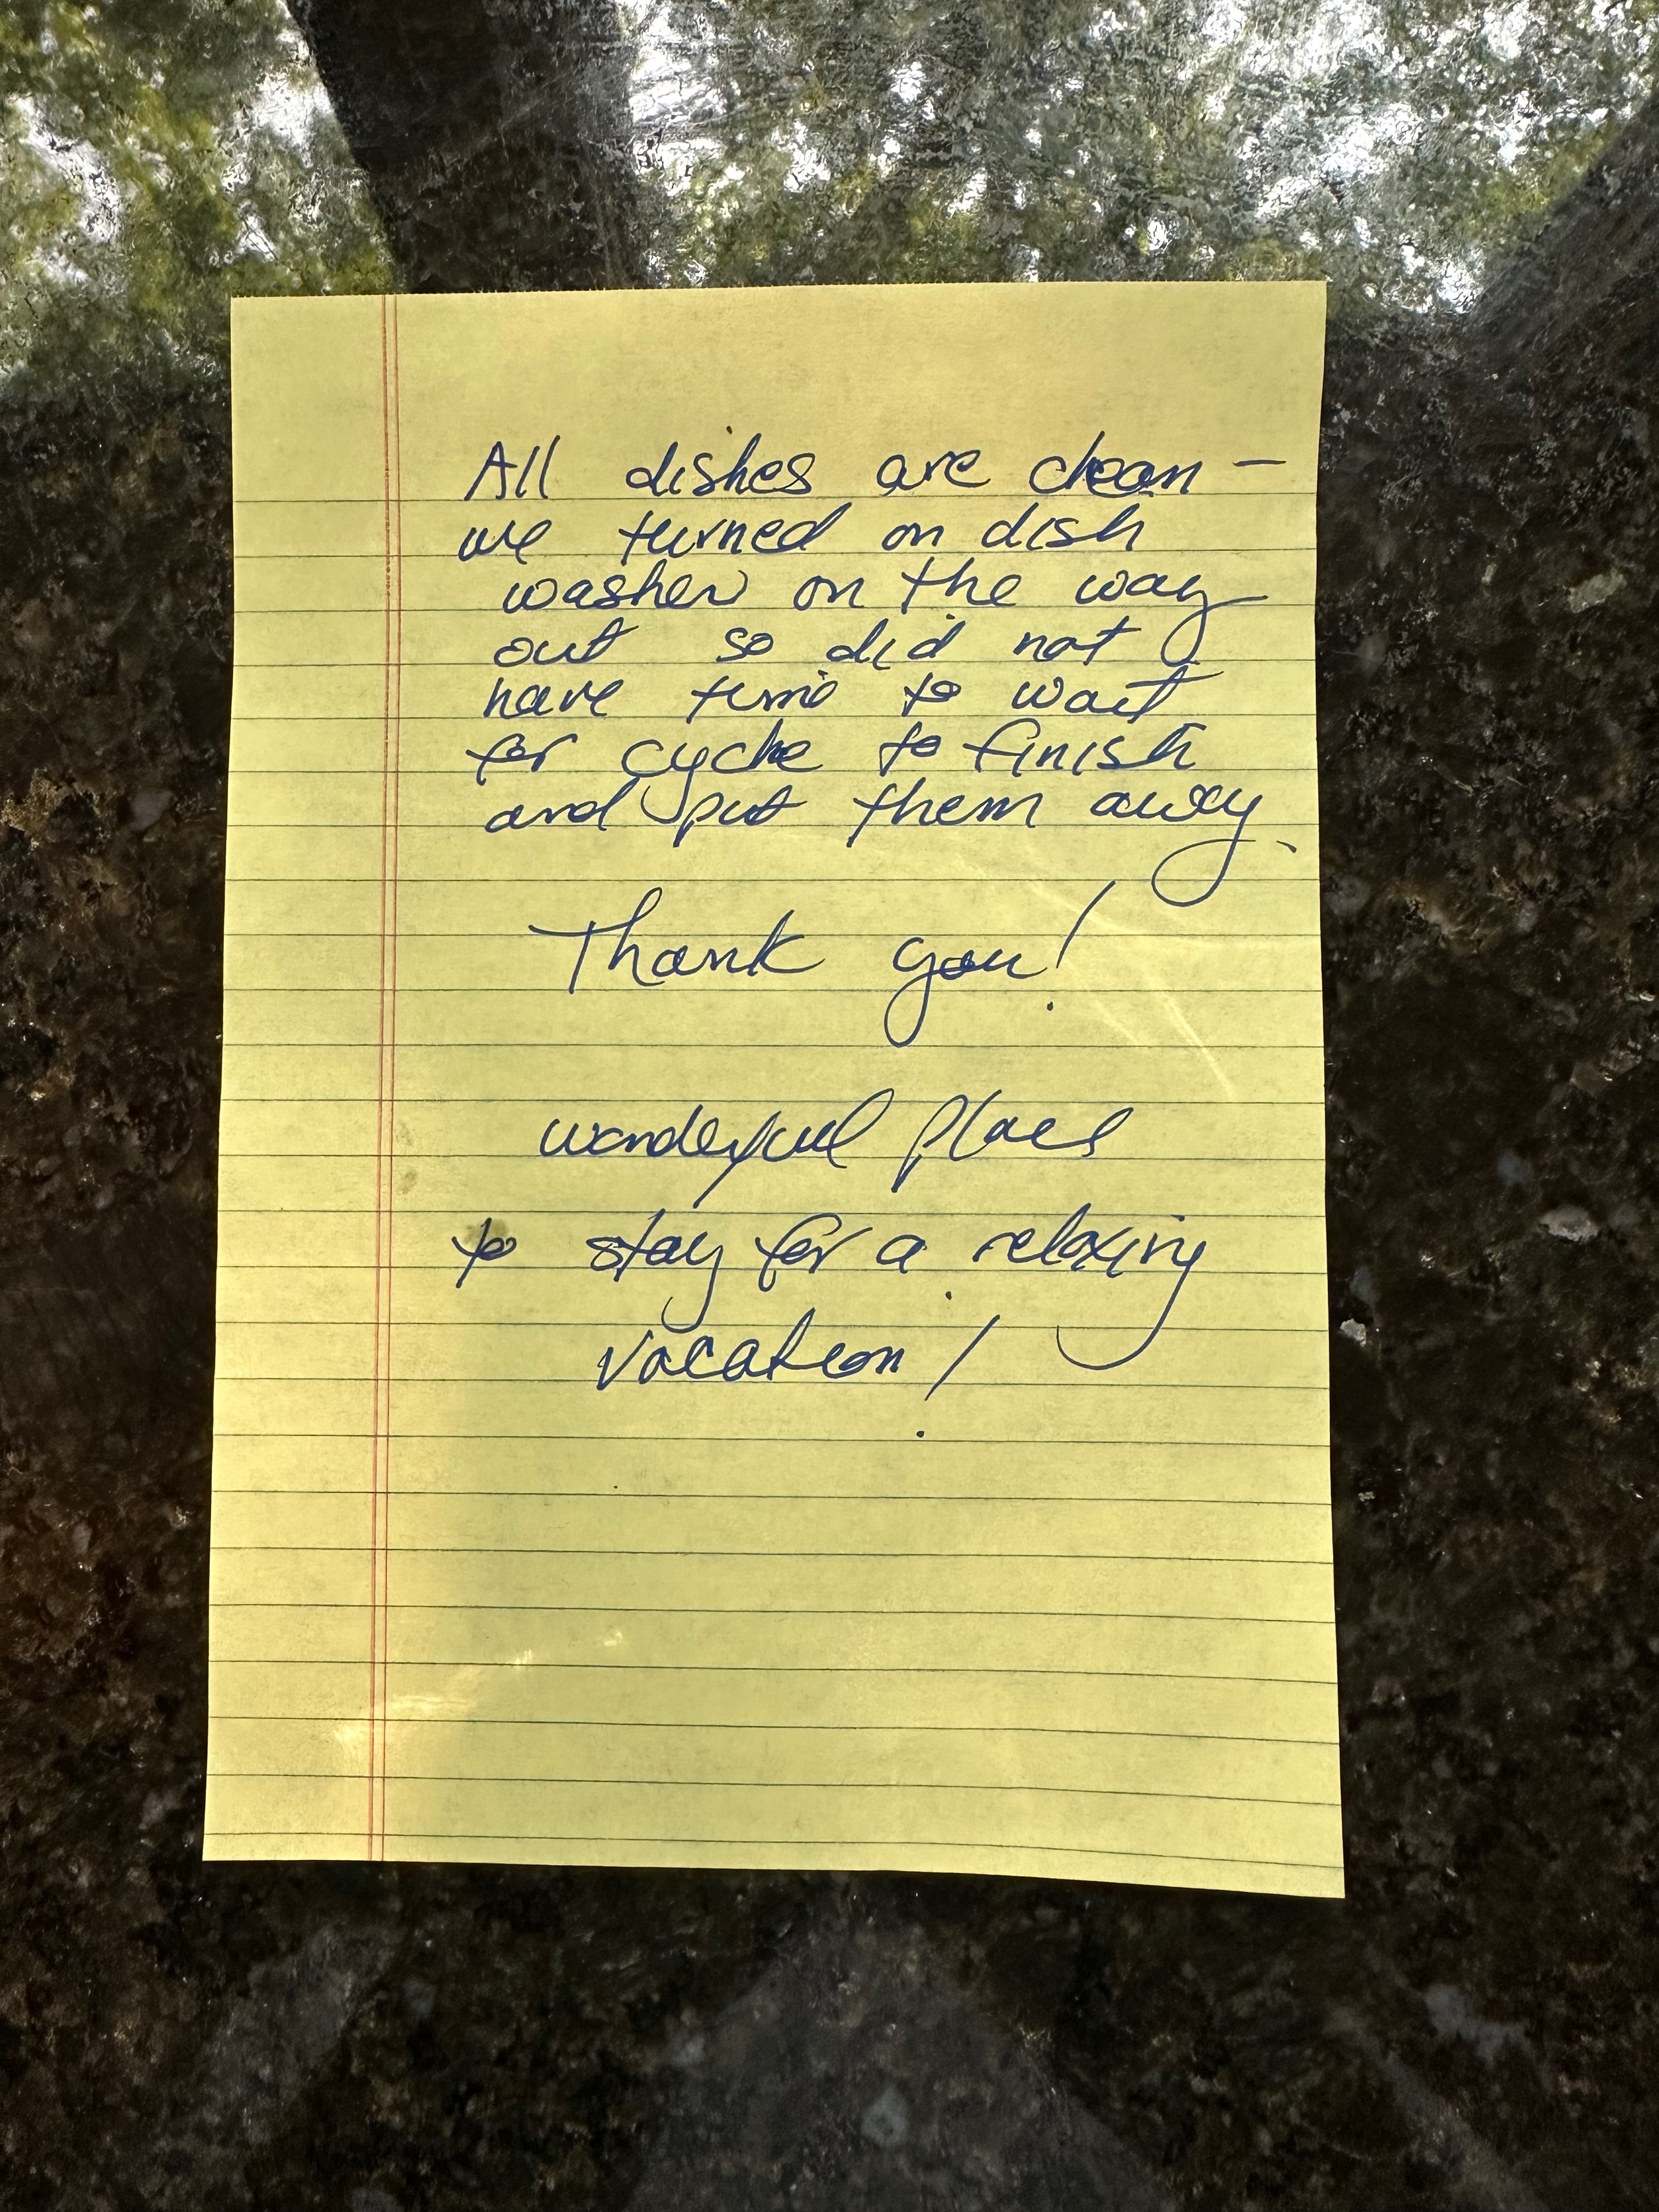 All dishes are clean -
we turned on dish
washer on the way
out so did not
have time to wait
for cycle to finish
and put them away.
Thank you!
wonderful place
to stay for a relaxing
vacation!